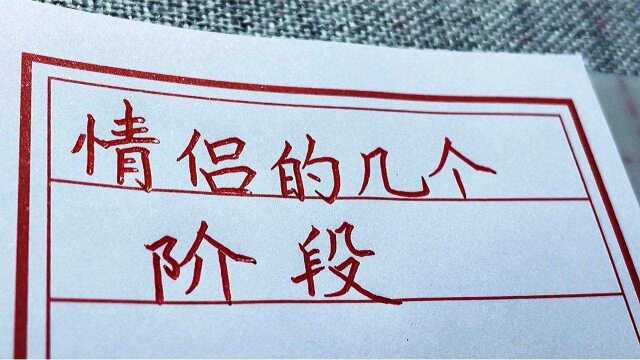 情侣的几个
阶段